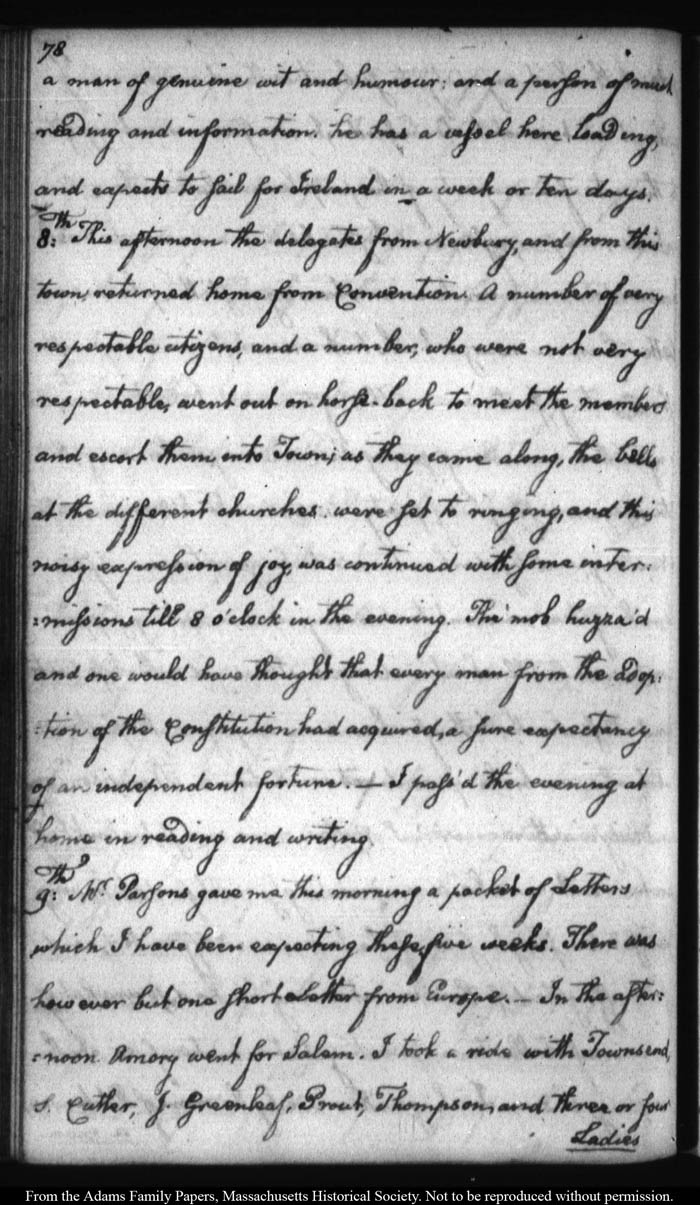 78
a man of genuine wit and humour: and a person of much
reading and information. he has a vessel here loading,
and expects to sail for Ireland in a week or ten days.
8:th This afternoon the delegates from Newbury, and from this
town, returned home from Convention. A number of very
respectable citizens, and a number, who were not very
respectable, went out on horse-back to meet the members
and escort them into Town; as they came along, the bells
at the different churches were set to ringing, and this
noisy expression of joy, was continued with some inter:
:missions till 8 o'clock in the evening. The mob huzza'd
and one would have thought that every man from the adop:
:tion of the Constitution had acquired, a sure expectancy
of an independent fortune. — I pass'd the evening at
home in reading and writing.
9:th Mr. Parsons gave me this morning a packet of Letters
which I have been expecting these five weeks. There was
however but one short Letter from Europe. — In the after:
:noon Amory went for Salem. I took a ride with Townsend,
S. Cutler, J. Greenleaf, Prout, Thompson, and three or four
Ladies
From the Adams Family Papers, Massachusetts Historical Society. Not to be reproduced without permission.